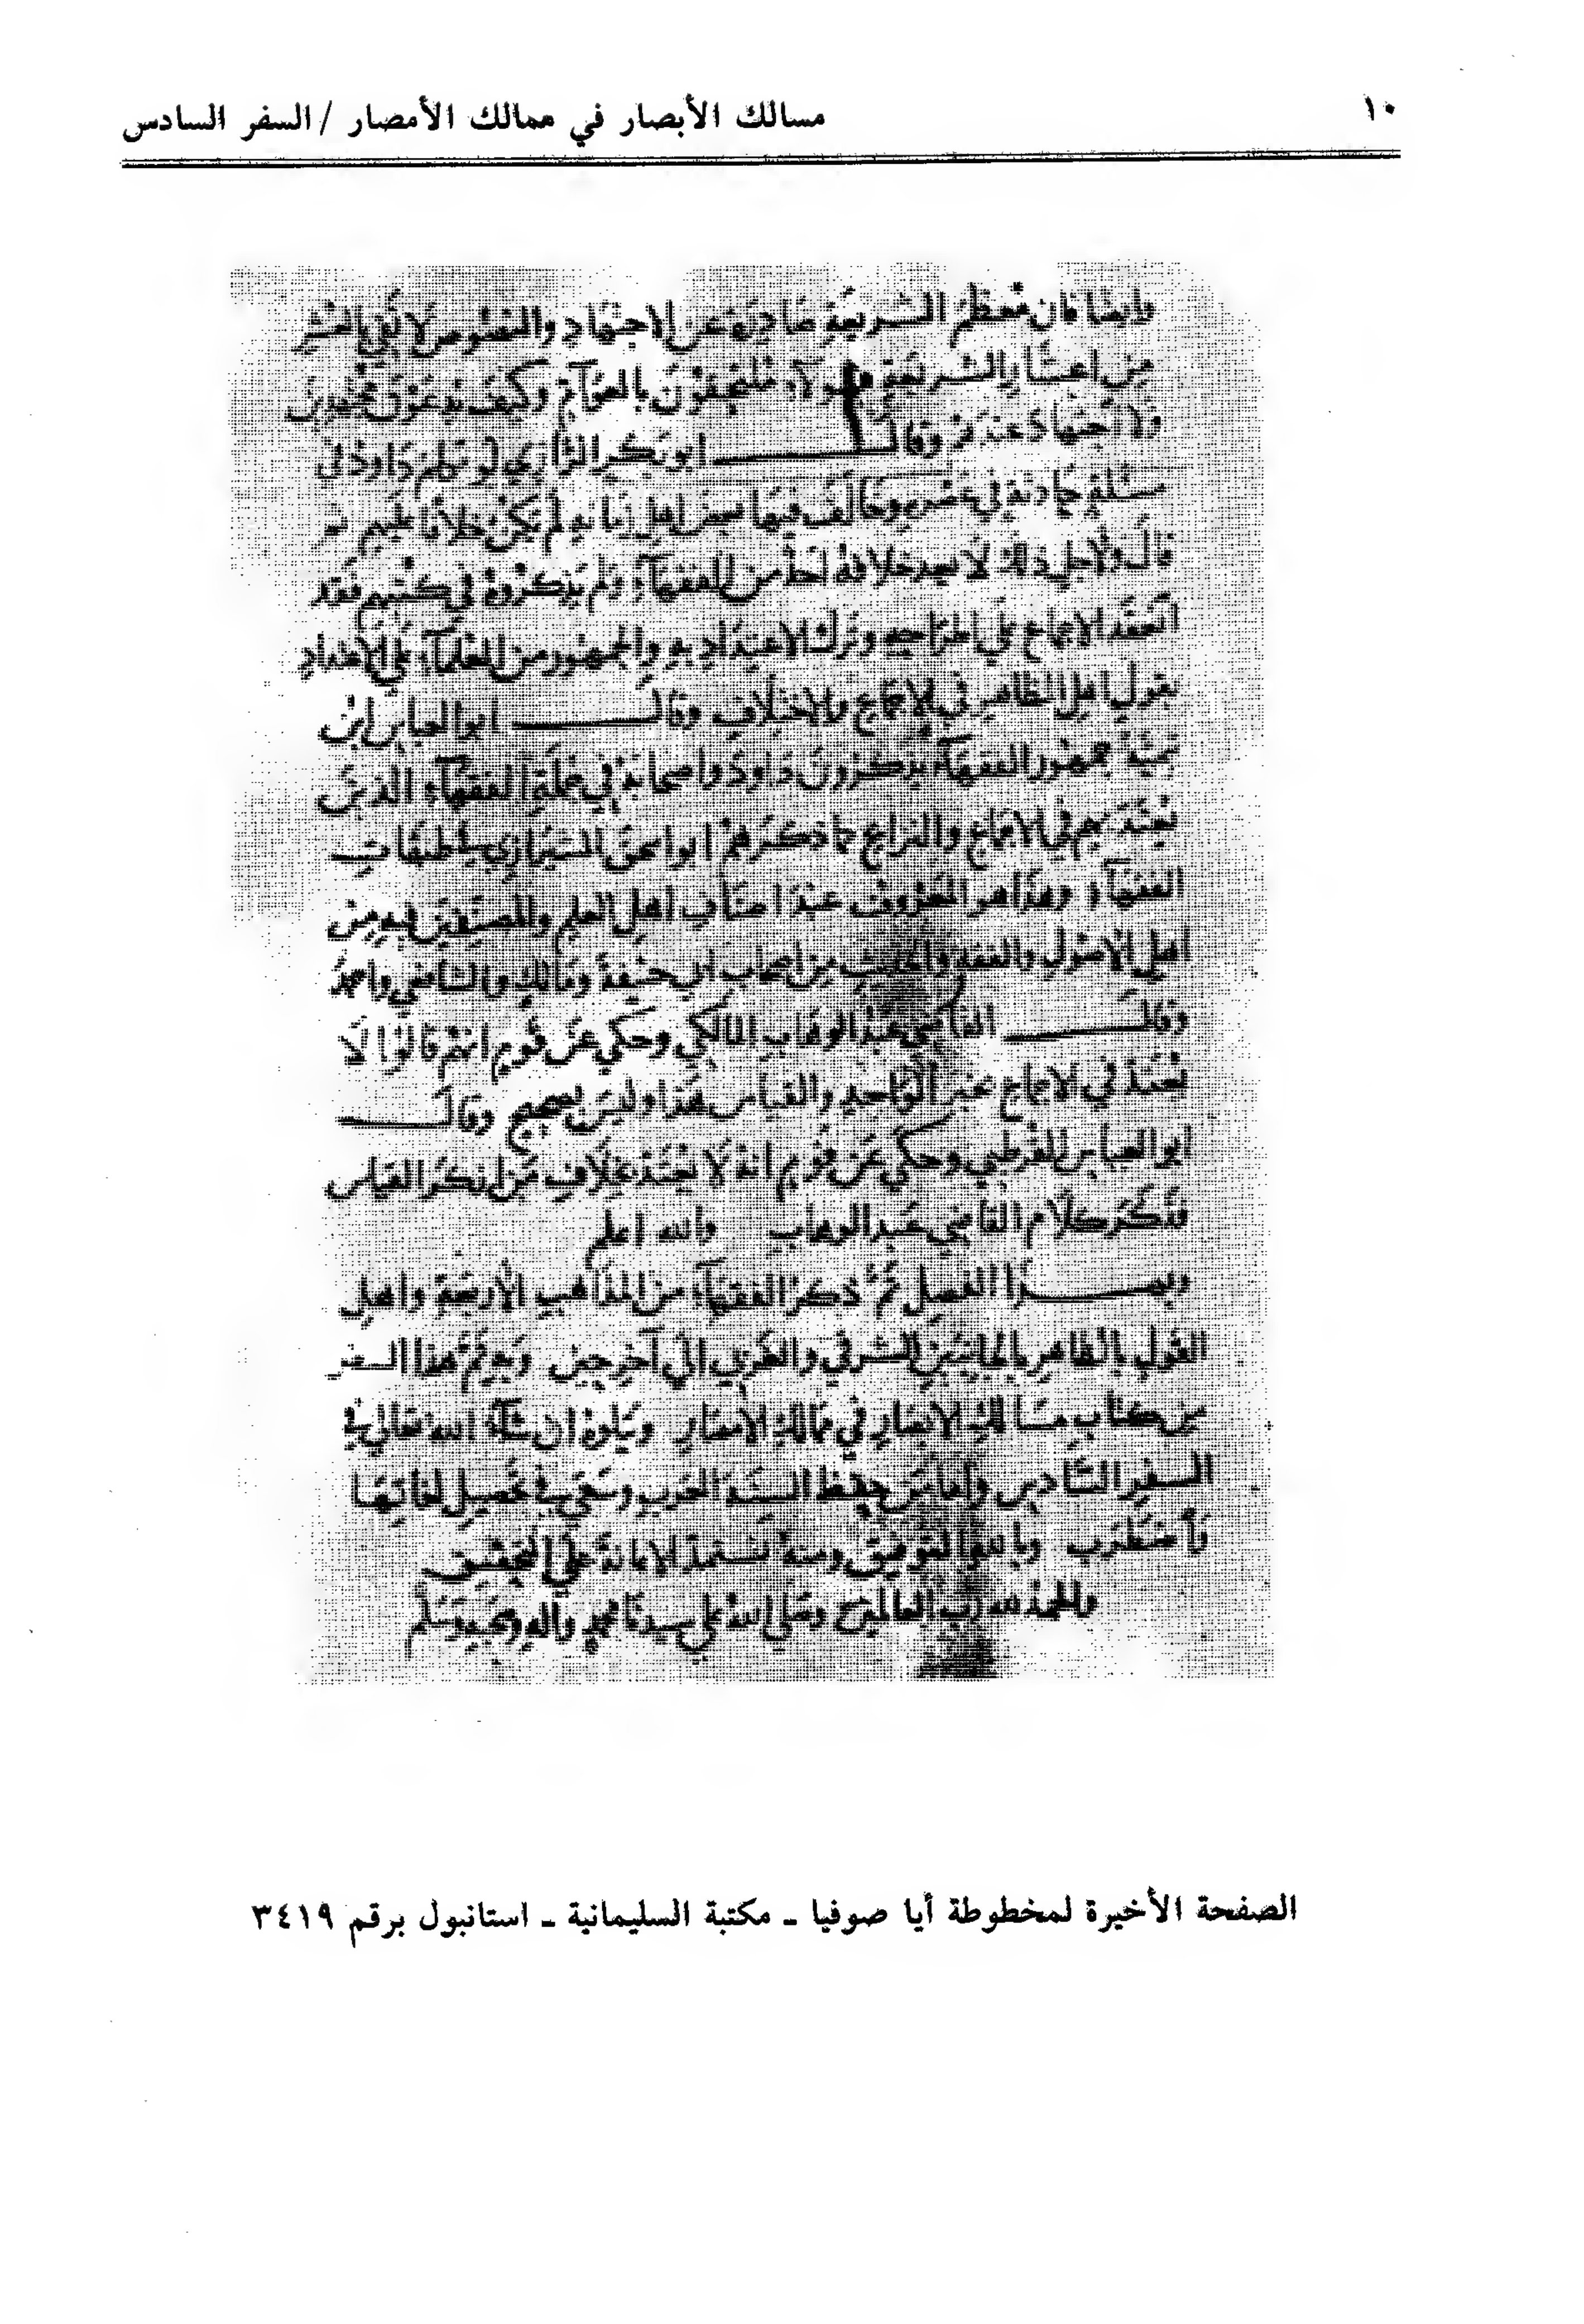 ١٠
مسالك الأبصار في ممالك الأمصار / السفر السادس
وايضا فان معظم الشريعة صادرة عن الاجتهاد والنصوص لا تفي بالعشر
من الشريعة وهولاء ملتحقون بالعوام وكيف يدعون مجتهدين
ولا اجتهاد عندهم وقال ابو بكر الرازي لو تكلم داود في
مسئلة حادثة في عصره وخالف فيها بعض اهل زمانه لم يكن خلافا عليهم
قال ولاجل ذلك لا يعد خلافه احد من الفقهاء ولم يذكروه في كتبهم فقد
انعقد الاجماع على اطراحه وترك الاعتداد به والجمهور من العلماء على الاعتداد
بقول اهل الظاهر في الاجماع والاختلاف وقال ابو العباس ابن
تيمية جمهور الفقهاء يذكرون داود واصحابه في جملة الفقهاء الذين
يعتد بهم في الاجماع والنزاع كما ذكرهم ابو اسحق الشيرازي في طبقات
الفقهاء وهذا هو المعروف عند اصناف اهل العلم والمصنفين فيه من
اهل الاصول والفقه والحديث من اصحاب ابي حنيفة ومالك والشافعي واحمد
وقال القاضي عبد الوهاب المالكي وحكي عن قوم انهم قالوا لا
يعتد في الاجماع بخبر الواحد والقياس هذا وليس بصحيح وقال
ابو العباس القرطبي وحكي عن قوم انه لا يعتد بخلاف من انكر القياس
فذكر كلام القاضي عبد الوهاب والله اعلم
وبهذا الفصل تم ذكر الفقهاء من المذاهب الأربعة واهل
القول بالظاهر بالجانبين الشرقي والغربي الى آخر حين وبه تم هذا السفر
من كتاب مسالك الابصار في ممالك الأمصار ويتلوه ان شاء الله تعالى في
السفر السادس واما من حفظ السنة العرب وسعى في تحصيل لغاتها
واضطرب وبالله التوفيق ومنه نستمد الاعانة على التحقيق
والحمد لله رب العالمين وصلى الله على سيدنا محمد واله وصحبه وسلم
الصفحة الأخيرة لمخطوطة أيا صوفيا ـ مكتبة السليمانية ـ استانبول برقم ٣٤١٩